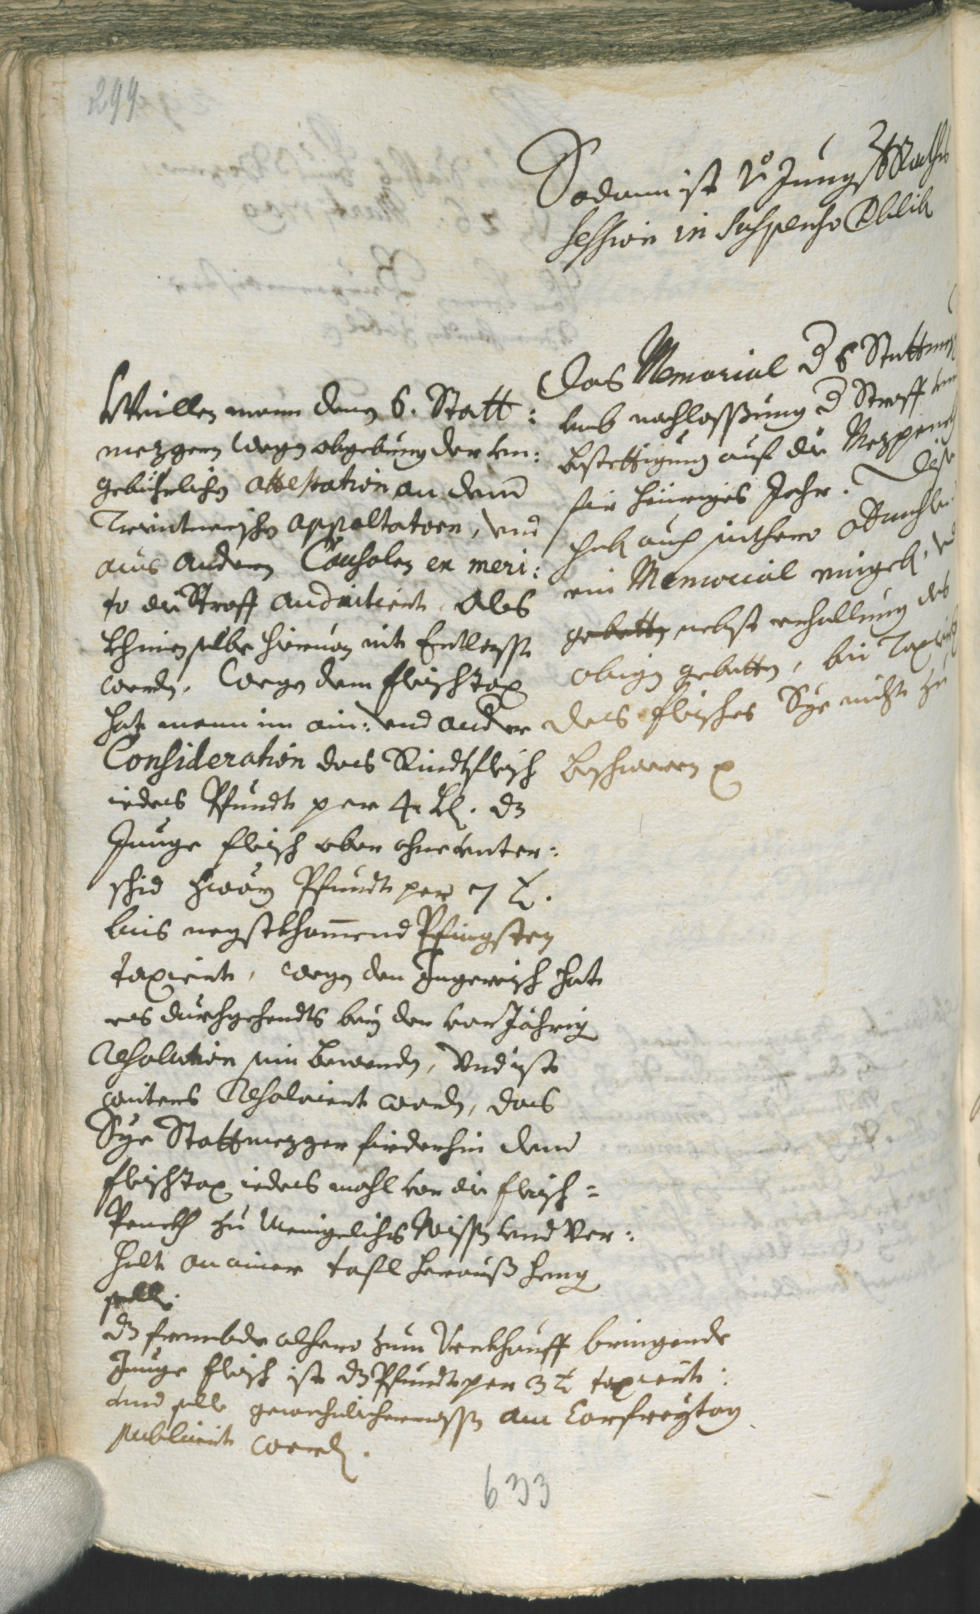 299
Sodann ist v̊ Jüngst Raths
Session in Suspenso Pblib
Das Memorial d 6 Stattmez
umb nachlassung d Straff
bestettigung auf die Mezpenckh
für heuriges Jahr. Dise
hab auch
ein Memorial eingeb. vnd
gebetten nebst enhallung des
obigen gebetten, bei Taxier
des fleisches Sye nicht zu
beschwern
Weillen mann denen 6. Statt:
mezgern wegen abgebung der vn:
gebihrlichen attestation an dem
Trientnerischen appaltatorn, vnd
aus andern Causalen ex meri:
to die Straff andictiert. Als
khinen selbe hieruon nit Entlassen
werden. Wegen dem fleischtax
hat mann in ain: vnd ander
Consideration das Rindtfleisch
iedes Pfundt per 4 kh. dz
Junge fleisch aber ohne vnter:
schid zway Pfundt per 7 kh.
bis negstkhommend Pfingsten
taxiert, wegen den Ingereisch hat
es durchgehendts bey der vorJährig
Resolution sein bewenden, vnd ist
weiters Resoluiert worden, das
Sye Stattmezger firderhin dem
fleischtax iedes mahl vor die fleisch=
Penckh zu Menigeliches Wissen vnd Ver:
halt an ainer tafl herauß heng
solle.
dz frembde alhero zum Verkhauff bringende
Junge fleisch ist dz Pfundt per 3 kh taxiert:
vnd solle gewohnlichermassen am Carfreytag
publiciert werden.
633